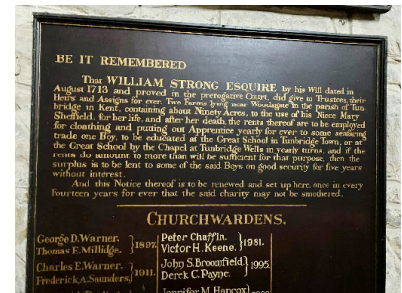 BE IT REMEMBERED
That WILLIAM STRONG ESQUIRE by his Will dated in
August 1713 and proved in the prerogative Court, did give to Trustees, their
Heirs and Assigns for ever. Two Farms lying near Woodsgate in the parish of Tun
bridge in Kent, containing about Ninety Acres, to the use of his Niece Mary
Sheffield, for her life, and after her death the rents thereof are to be employed
for cloathing and putting out Apprentice yearly for ever to some seafaring
trade one Boy, to be educated at the Great School in Tunbridge Town, or at
the Great School by the Chapel at Tunbridge Wells in yearly turns, and if the
rents do amount to more than will be sufficient for that purpose, then the
surplus is to be lent to some of the said Boys on good security for five years
without interest.
And this Notice thereof is to be renewed and set up here once in every
Fourteen years for ever that the said charity may not be smothered.
CHURCHWARDENS.
George D. Warner.
Thomas E. Millidge. } 1897.
Charles E. Warner.
Frederick A. Saunders, } 1911.
Peter Chaffin.
Victor H. Keene. } 1981.
John S. Broomfield.
Derek C. Payne. } 1995.
Jennifer M. Hancox